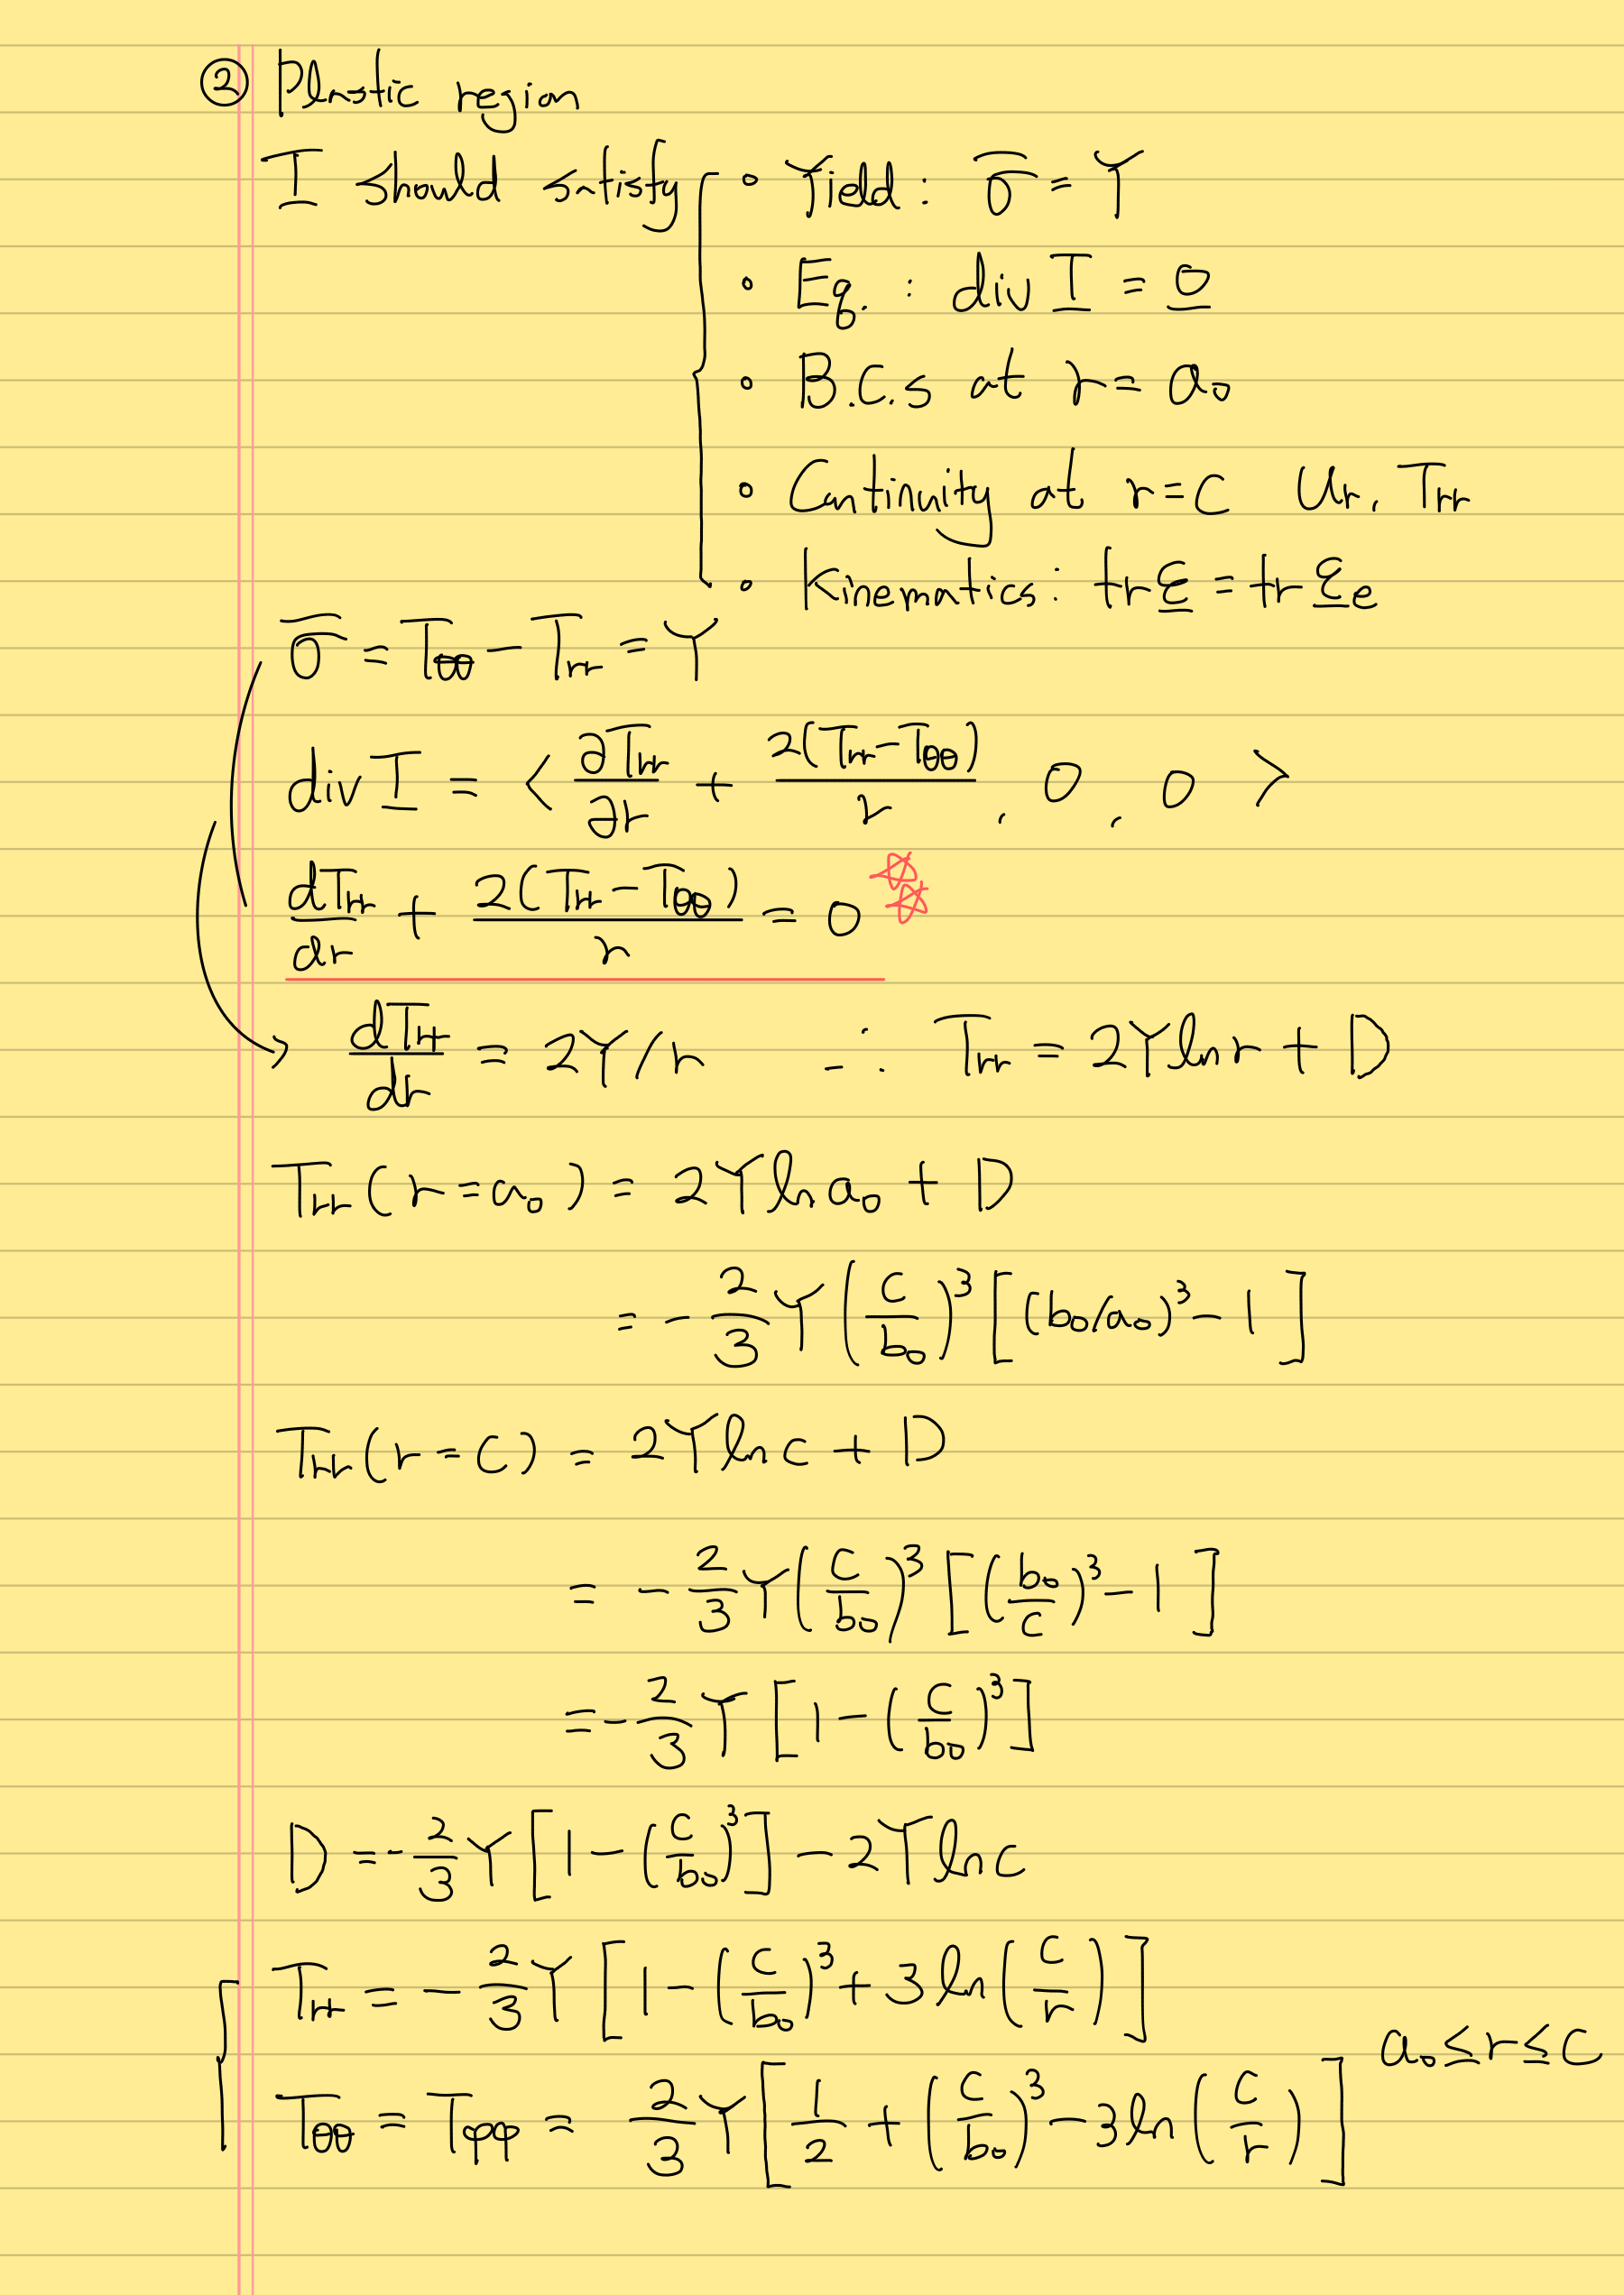 ② Plastic region
T should satisfy { ∘ Yield : σ̄ = Y
∘ Eq. : div T = 0
∘ B.C.s at r = a₀
∘ Continuity at r = c  uᵣ, Tᵣᵣ
∘ Kinematics : tr ε = tr εₑ
σ̄ = T_θθ − T_rr = Y
div T = < ∂T_rr/∂r + 2(T_rr − T_θθ)/r , 0 , 0 >
dT_rr/dr + 2(T_rr − T_θθ)/r = 0 ☆☆
→ dT_rr/dr = 2Y/r  ∴ T_rr = 2Y ln r + D
T_rr (r = a₀) = 2Y ln a₀ + D
= − 2/3 Y (c/b₀)³ [(b₀/a₀)³ − 1]
T_rr (r = c) = 2Y ln c + D
= − 2/3 Y (c/b₀)³ [(b₀/c)³ − 1]
= − 2/3 Y [1 − (c/b₀)³]
D = − 2/3 Y [1 − (c/b₀)³] − 2Y ln c
T_rr = − 2/3 Y [1 − (c/b₀)³ + 3 ln (c/r)]
T_θθ = T_φφ = 2/3 Y [1/2 + (c/b₀)³ − 3 ln (c/r)]  a₀ ≤ r ≤ c